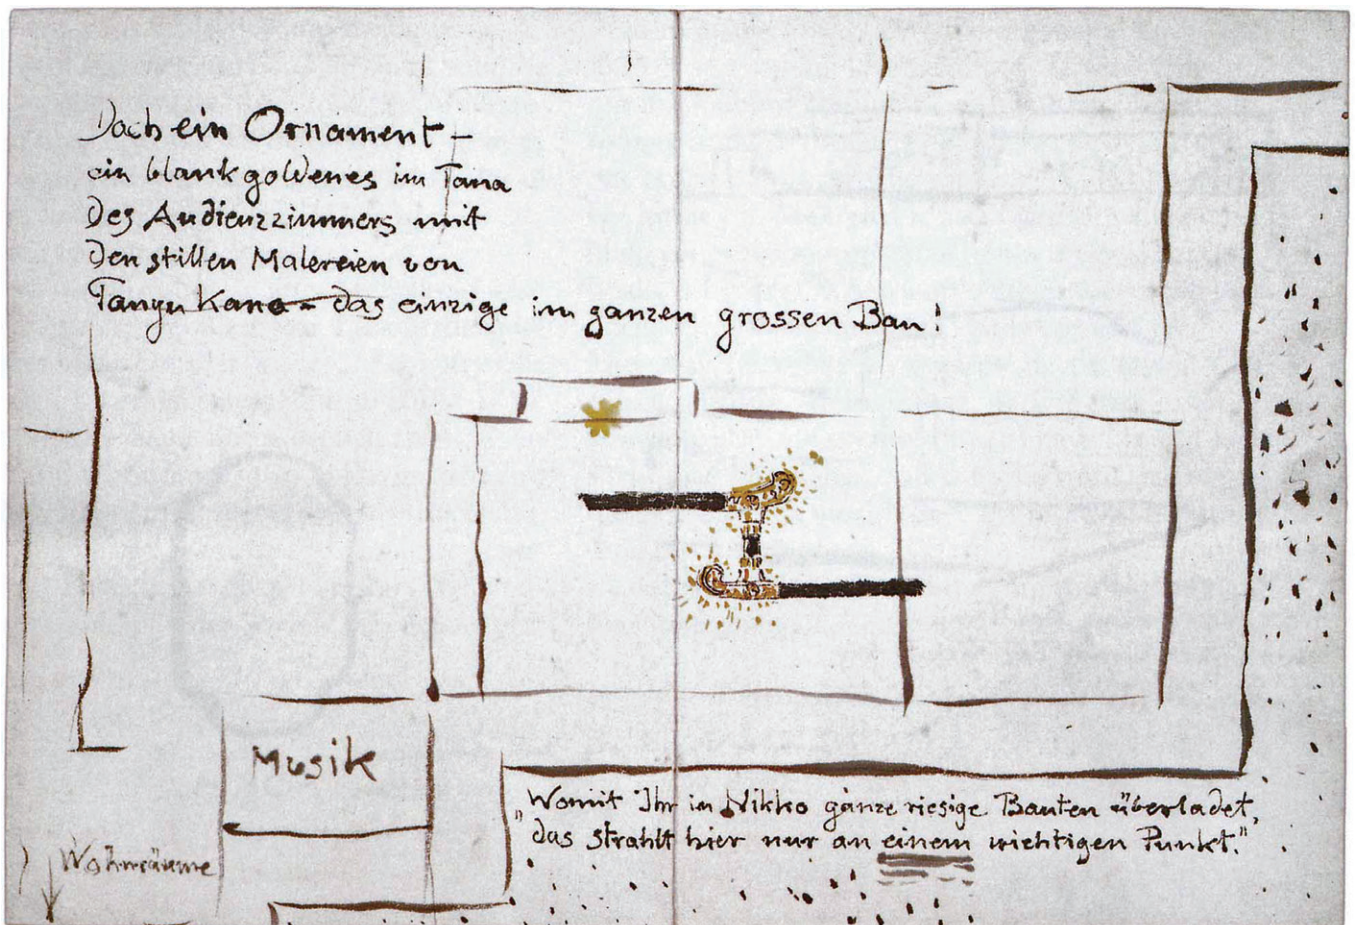 Doch ein Ornament –
ein blank goldenes im Tana
des Audienzzimmers mit
den stillen Malereien von
Tanyu Kano – das einzige im ganzen grossen Bau!
Musik
„Womit Ihr in Nikko ganze riesige Bauten überladet,
das strahlt hier nur an einem wichtigen Punkt.“
Wohnräume